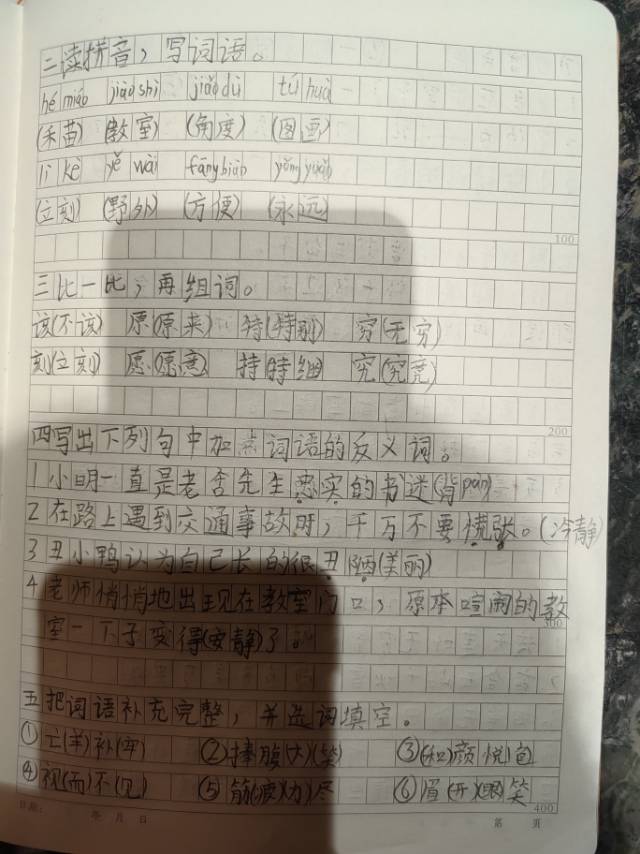 二读拼音，写词语。
hé miáo jiào shì jiǎo dù tú huà
(禾苗) (教室) (角度) (图画)
lì kè yě wài fāng biàn yǒng yuǎn
(立刻) (野外) (方便) (永远)
100
三比一比，再组词。
该(不该) 原(原来) 特(特别) 穷(无穷)
刻(立刻) 愿(愿意) 持(持细) 究(究竟)
200
四写出下列句中加点词语的反义词。
1小明一直是老舍先生忠实的书迷(背pàn)
2在路上遇到交通事故时，千万不要慌张。(冷静)
3丑小鸭认为自己长的很丑陋(美丽)
4老师悄悄地出现在教室门口，原本喧闹的教
室一下子变得(安静)了。
300
五把词语补充完整，并选词填空。
①亡(羊)补(牢) ②捧腹(大)(笑) ③(和)颜悦色
④视(而)不(见) ⑤筋(疲)(力)尽 ⑥眉(开)(眼)笑
400
日期： 年 月 日 第 页